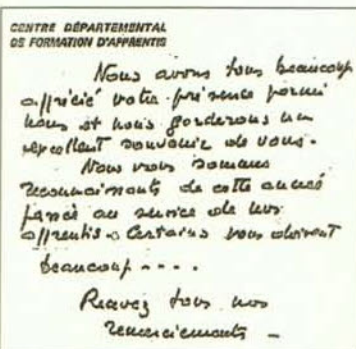 CENTRE DÉPARTEMENTAL
DE FORMATION D'APPRENTIS
Nous avons tous beaucoup
apprécié votre présence parmi
nous et nous garderons un
excellent souvenir de vous.
Nous vous sommes
reconnaissants de cette année
passée au service de nos
apprentis. Certains vous doivent
beaucoup....
Recevez tous nos
remerciements -